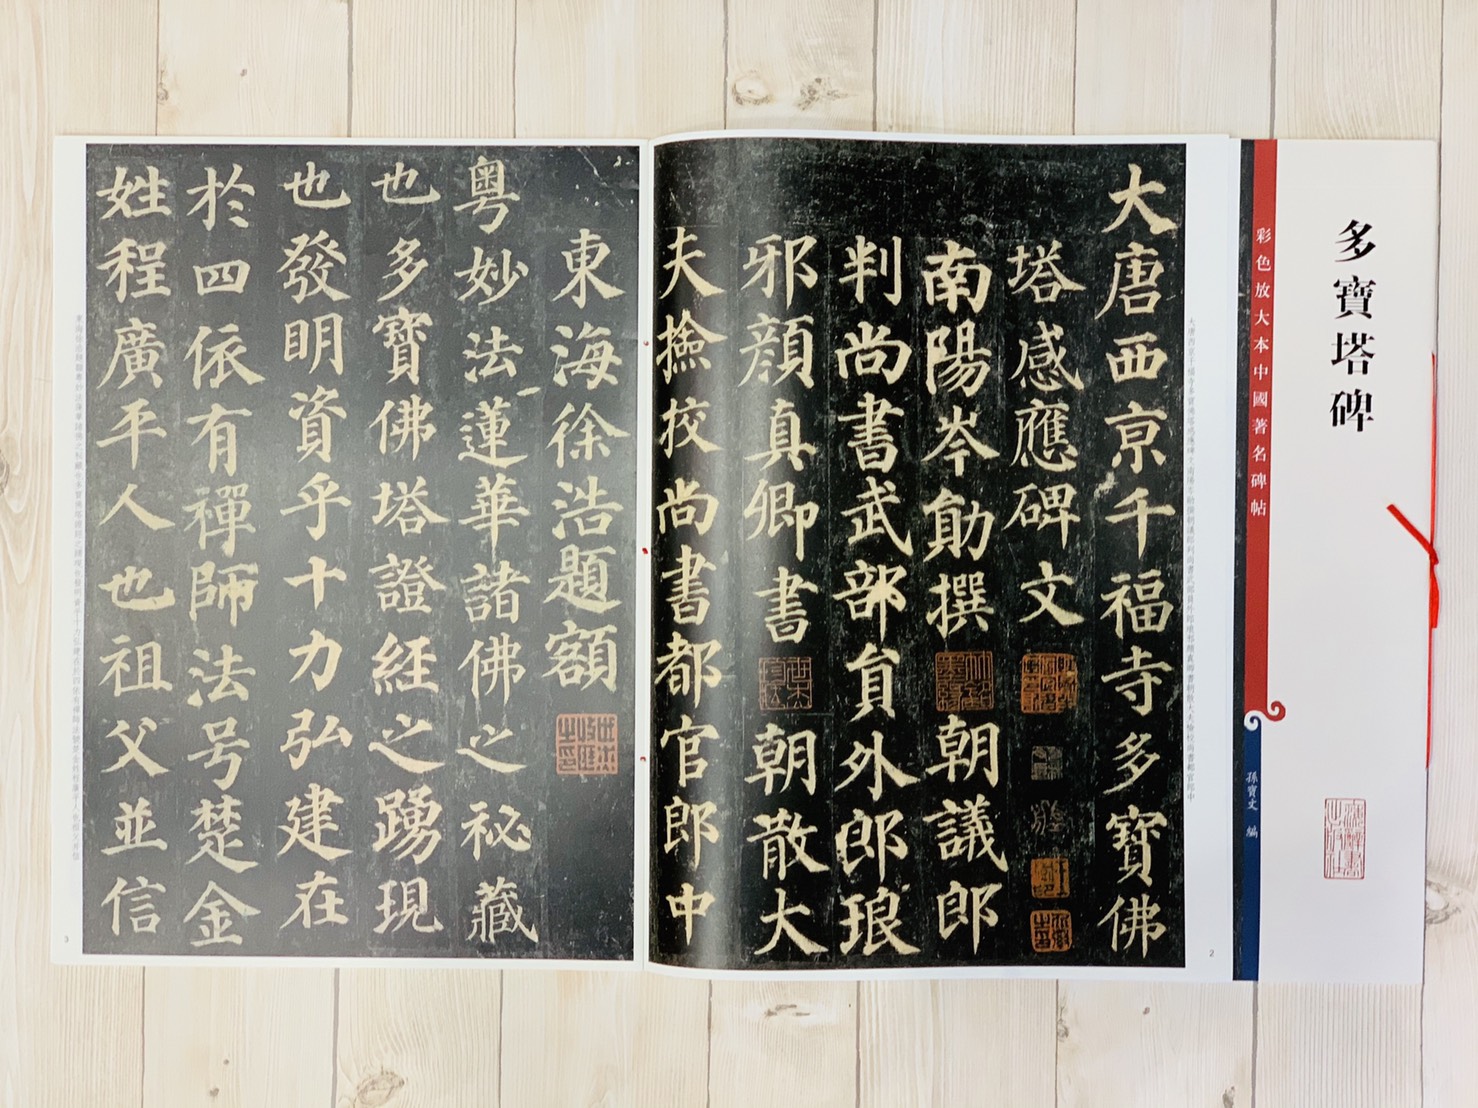 多寶塔碑
彩色放大本中國著名碑帖
孫寶文 編
大唐西京千福寺多寶佛
塔感應碑文
南陽岑勛撰 朝議郎
判尚書武部員外郎琅
邪顏真卿書 朝散大
夫撿挍尚書都官郎中
2
東海徐浩題額
粵妙法蓮華諸佛之祕藏
也多寶佛塔證經之踊現
也發明資乎十力弘建在
於四依有禪師法号楚金
姓程廣平人也祖父並信
3